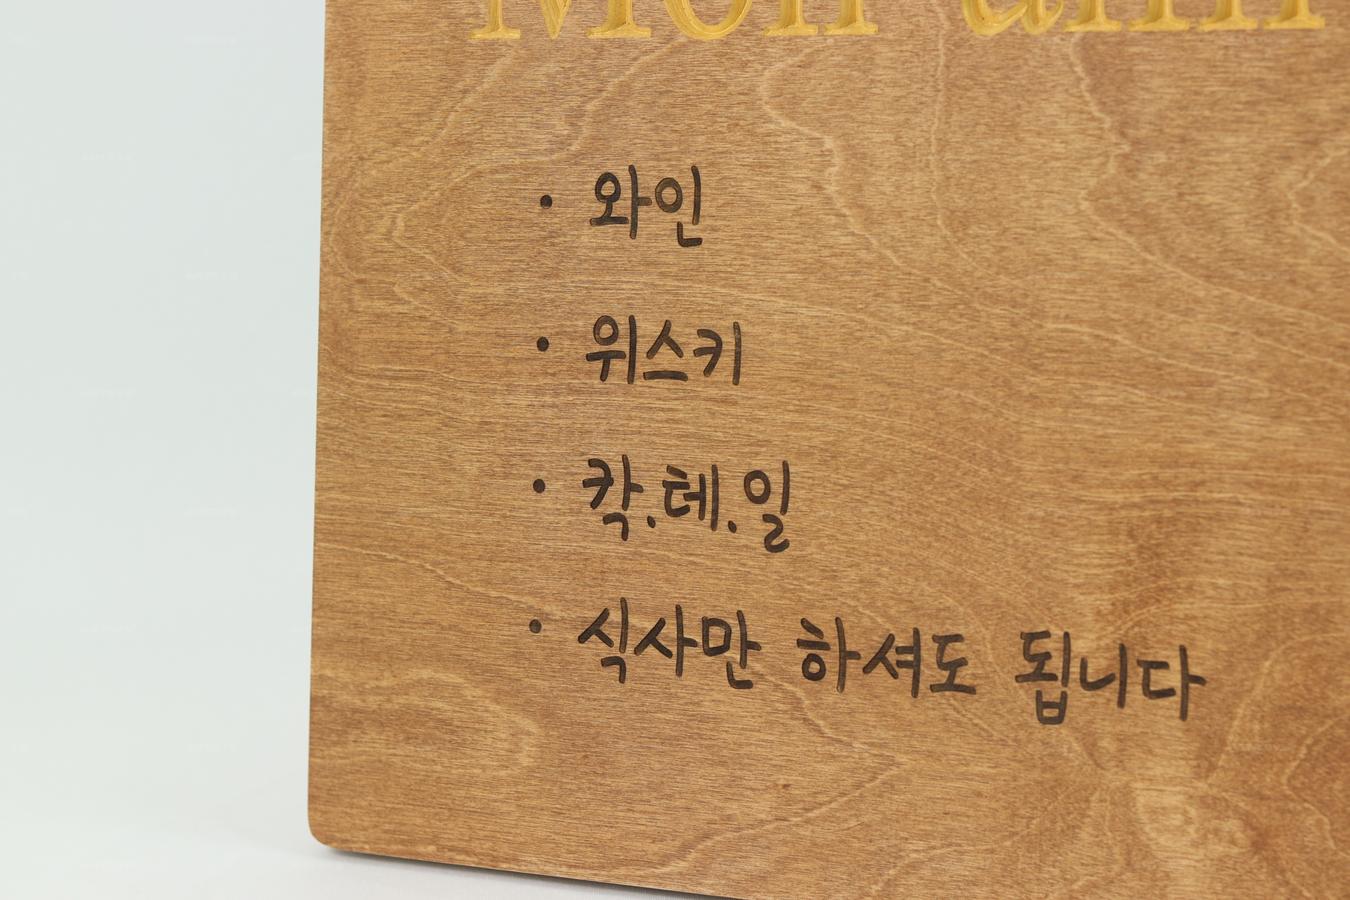 Mon
· 와인
· 위스키
· 칵.테.일
· 식사만 하셔도 됩니다